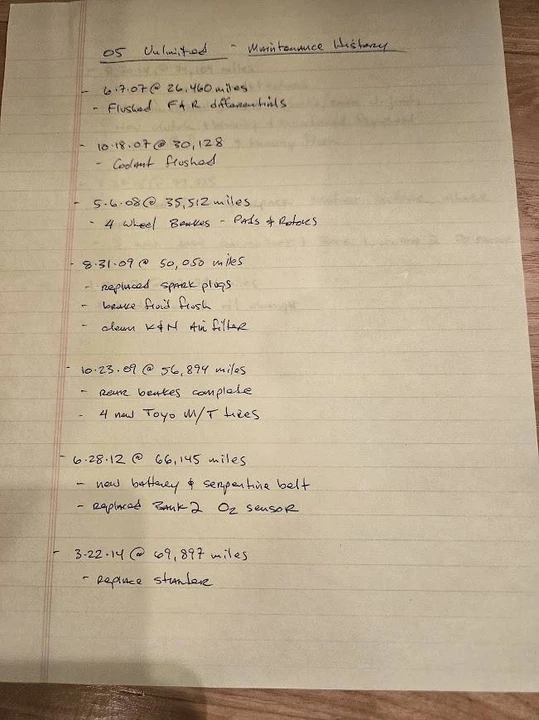 05 Unlimited - Maintenance History
- 6.7.07 @ 26,460 miles
- Flushed F&R differentials
- 10.18.07 @ 30,128
- Coolant flushed
- 5.6.08 @ 35,512 miles
- 4 wheel Brakes - Pads & Rotors
- 8.31.09 @ 50,050 miles
- replaced spark plugs
- brake fluid flush
- clean K&N Air filter
- 10.23.09 @ 56,894 miles
- Rear brakes complete
- 4 new Toyo M/T tires
- 6.28.12 @ 66,145 miles
- new battery & serpentine belt
- replaced Bank 2 O2 sensor
- 3.22.14 @ 69,897 miles
- replace starter